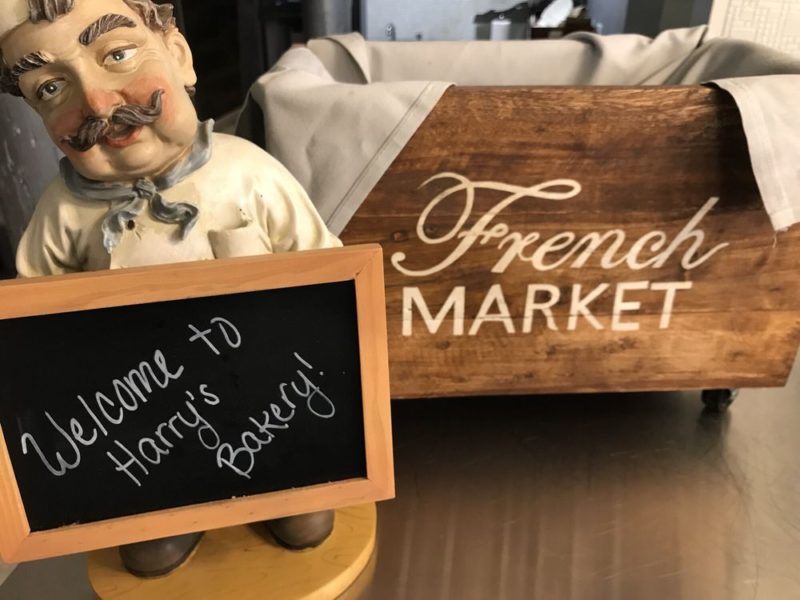 Welcome to
Harry's
Bakery!
French
MARKET